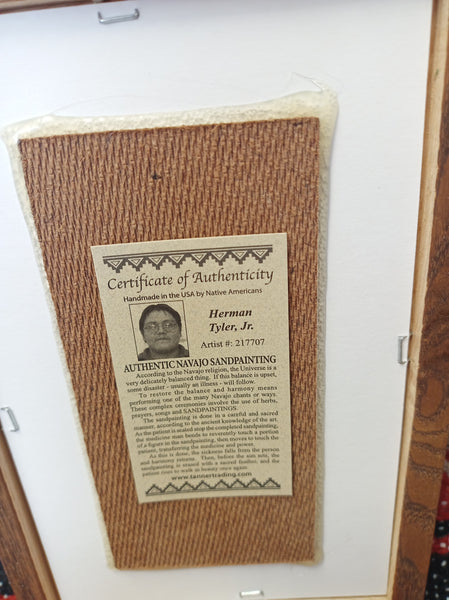 Certificate of Authenticity
Handmade in the USA by Native Americans
Herman
Tyler, Jr.
Artist #: 217707
AUTHENTIC NAVAJO SANDPAINTING
According to the Navajo religion, the Universe is a
very delicately balanced thing. If this balance is upset,
some disaster - usually an illness - will follow.
To restore the balance and harmony means
performing one of the many Navajo chants or ways.
These complex ceremonies involve the use of herbs,
prayers, songs and SANDPAINTINGS.
The sandpainting is done in a careful and sacred
manner, according to the ancient knowledge of the art.
As the patient is seated atop the completed sandpainting,
the medicine man bends to reverently touch a portion
of a figure in the sandpainting, then moves to touch the
patient, transferring the medicine and power.
As this is done, the sickness falls from the person
and harmony returns. Then, before the sun sets, the
sandpainting is erased with a sacred feather, and the
patient rises to walk in beauty once again.
www.tannertrading.com